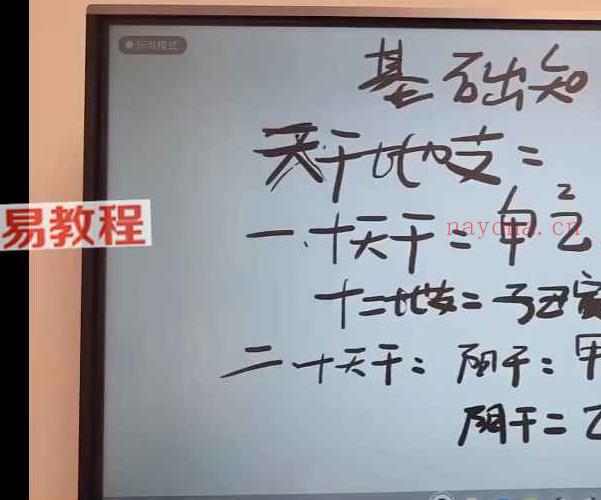 标准模式
基础知
天干地支=
易教程
一.十天干=甲乙
1 2
nayona.cn
十二地支=子丑寅
二十天干: 阳干: 甲
阴干=乙